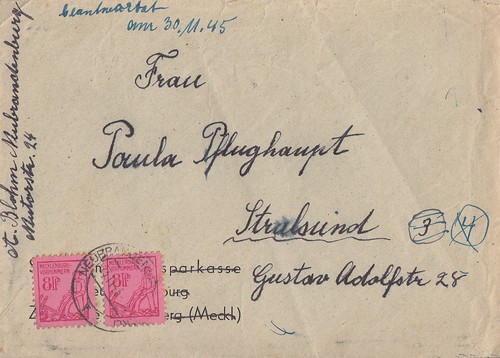 beantwortet
am 30.11.45
A. Blohm Neubrandenburg
Neutorstr. 24
Frau
Paula Pflughaupt
Stralsund
3
4
Gustav Adolfstr 28
NEUBRANDENBURG
MECKLENBURG
VORPOMMERN
8 Pf
MECKLENBURG
VORPOMMERN
8 Pf
sparkasse
burg
berg (Meckl.)